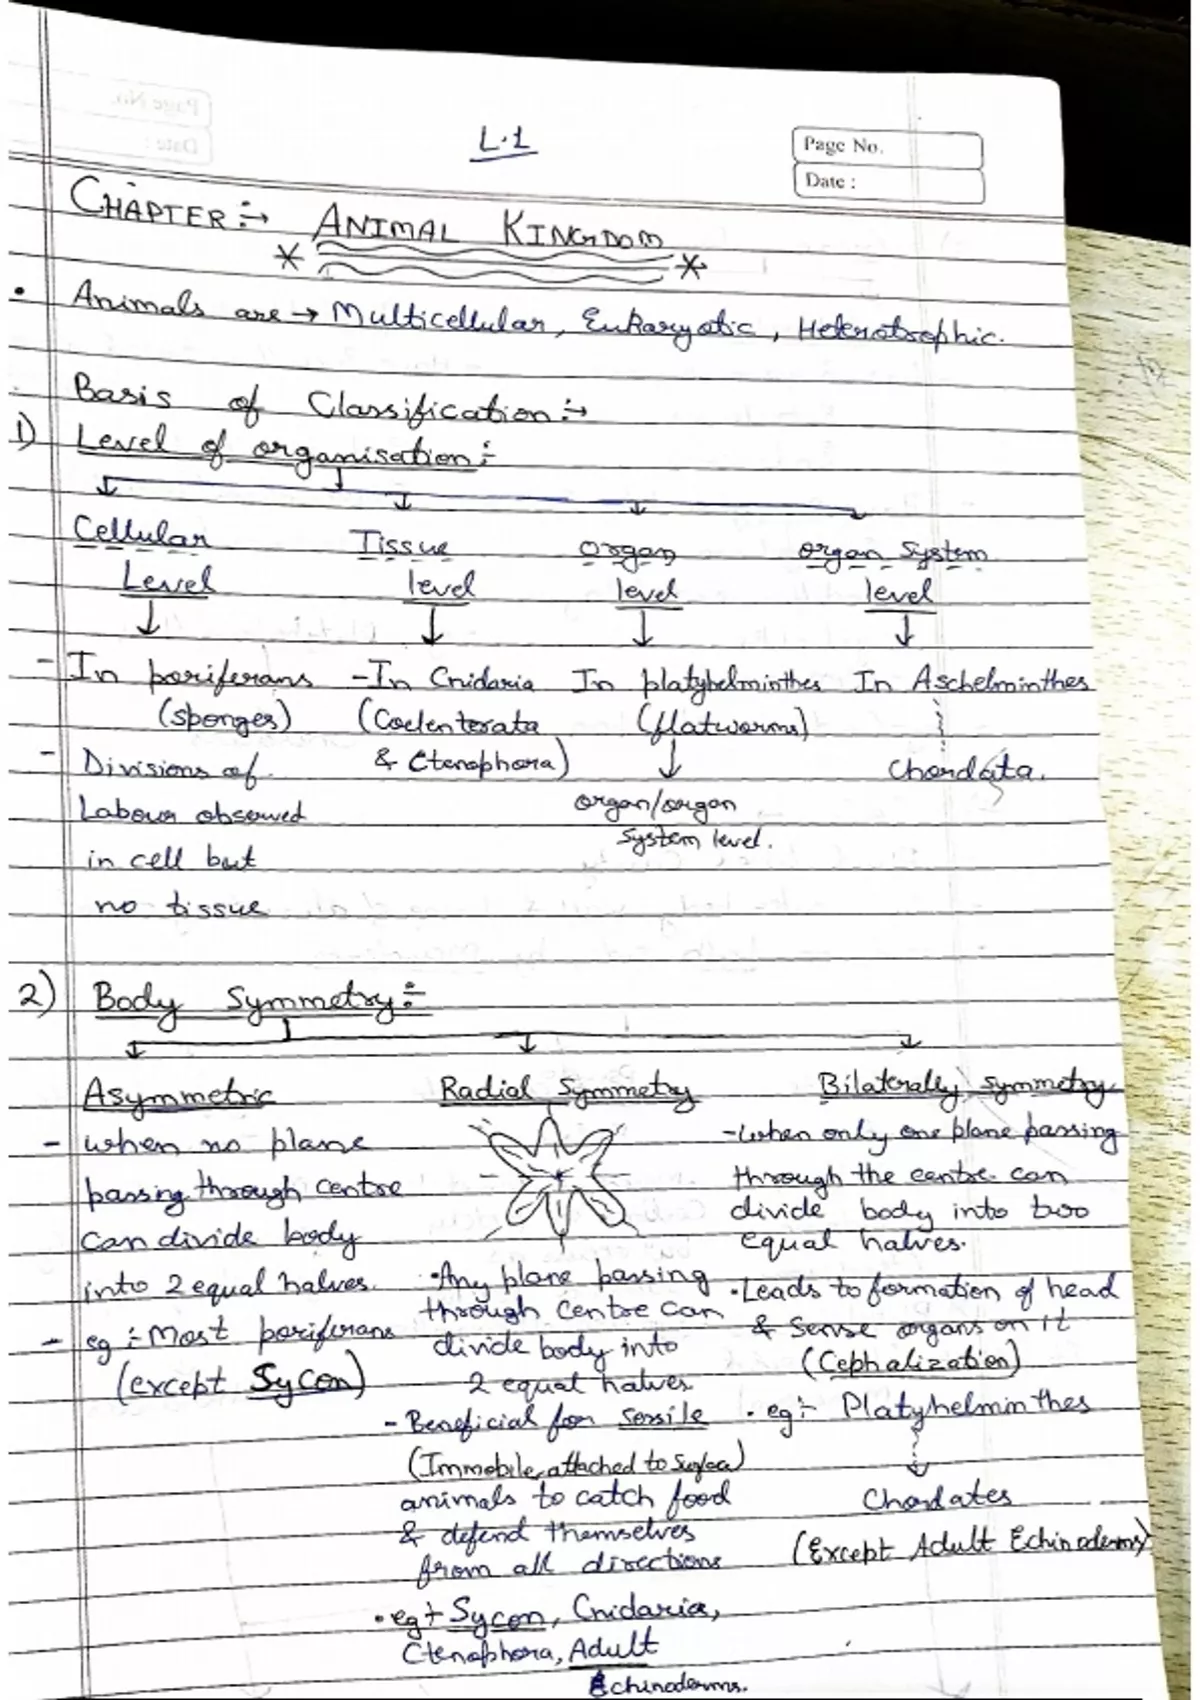 L.1
Page No.
Date :
CHAPTER :→ ANIMAL KINGDOM
• Animals are → Multicellular, Eukaryotic, Heterotrophic.
Basis of Classification :→
1) Level of organisation :-
Cellular Level
- In poriferans
(sponges)
- Divisions of
Labour observed
in cell but
no tissue
Tissue level
- In Cnidaria
(Coelenterata
& Ctenophora)
organ level
In platyhelminthes
(flatworms)
organ/organ
system level.
organ system level
In Aschelminthes
Chordata.
2) Body Symmetry :-
Asymmetric
- when no plane
passing through centre
can divide body
into 2 equal halves.
- eg :- Most poriferans
(except Sycon)
Radial Symmetry
• Any plane passing
through centre can
divide body into
2 equal halves
- Beneficial for sessile
(Immobile, attached to
animals to catch food
& defend themselves
from all directions
• eg + Sycon, Cnidaria,
Ctenophora, Adult
Echinoderms.
Bilaterally symmetry
- when only one plane passing
through the centre can
divide body into two
equal halves.
• Leads to formation of head
& Sense organs on it
(Cephalization)
• eg :- Platyhelminthes
Chordates
(Except Adult Echinoderms)